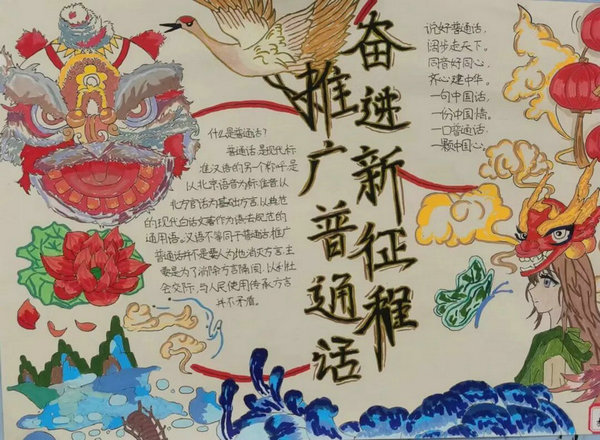 推广普通话
奋进新征程
什么是普通话?
普通话是现代标
准汉语的另一个称呼是
以北京语音为标准音以
北方官话为基础方言,以典范
的现代白话文著作为语法规范的
通用语。汉语不等同于普通话推广
普通话并不是要人为地消灭方言,主
要是为了消除方言隔阂,以利社
会交际,与人民使用传承方言
并不矛盾。
说好普通话,
阔步走天下。
同音好同心,
齐心建中华。
一句中国话,
一份中国情。
一口普通话,
一颗中国心。